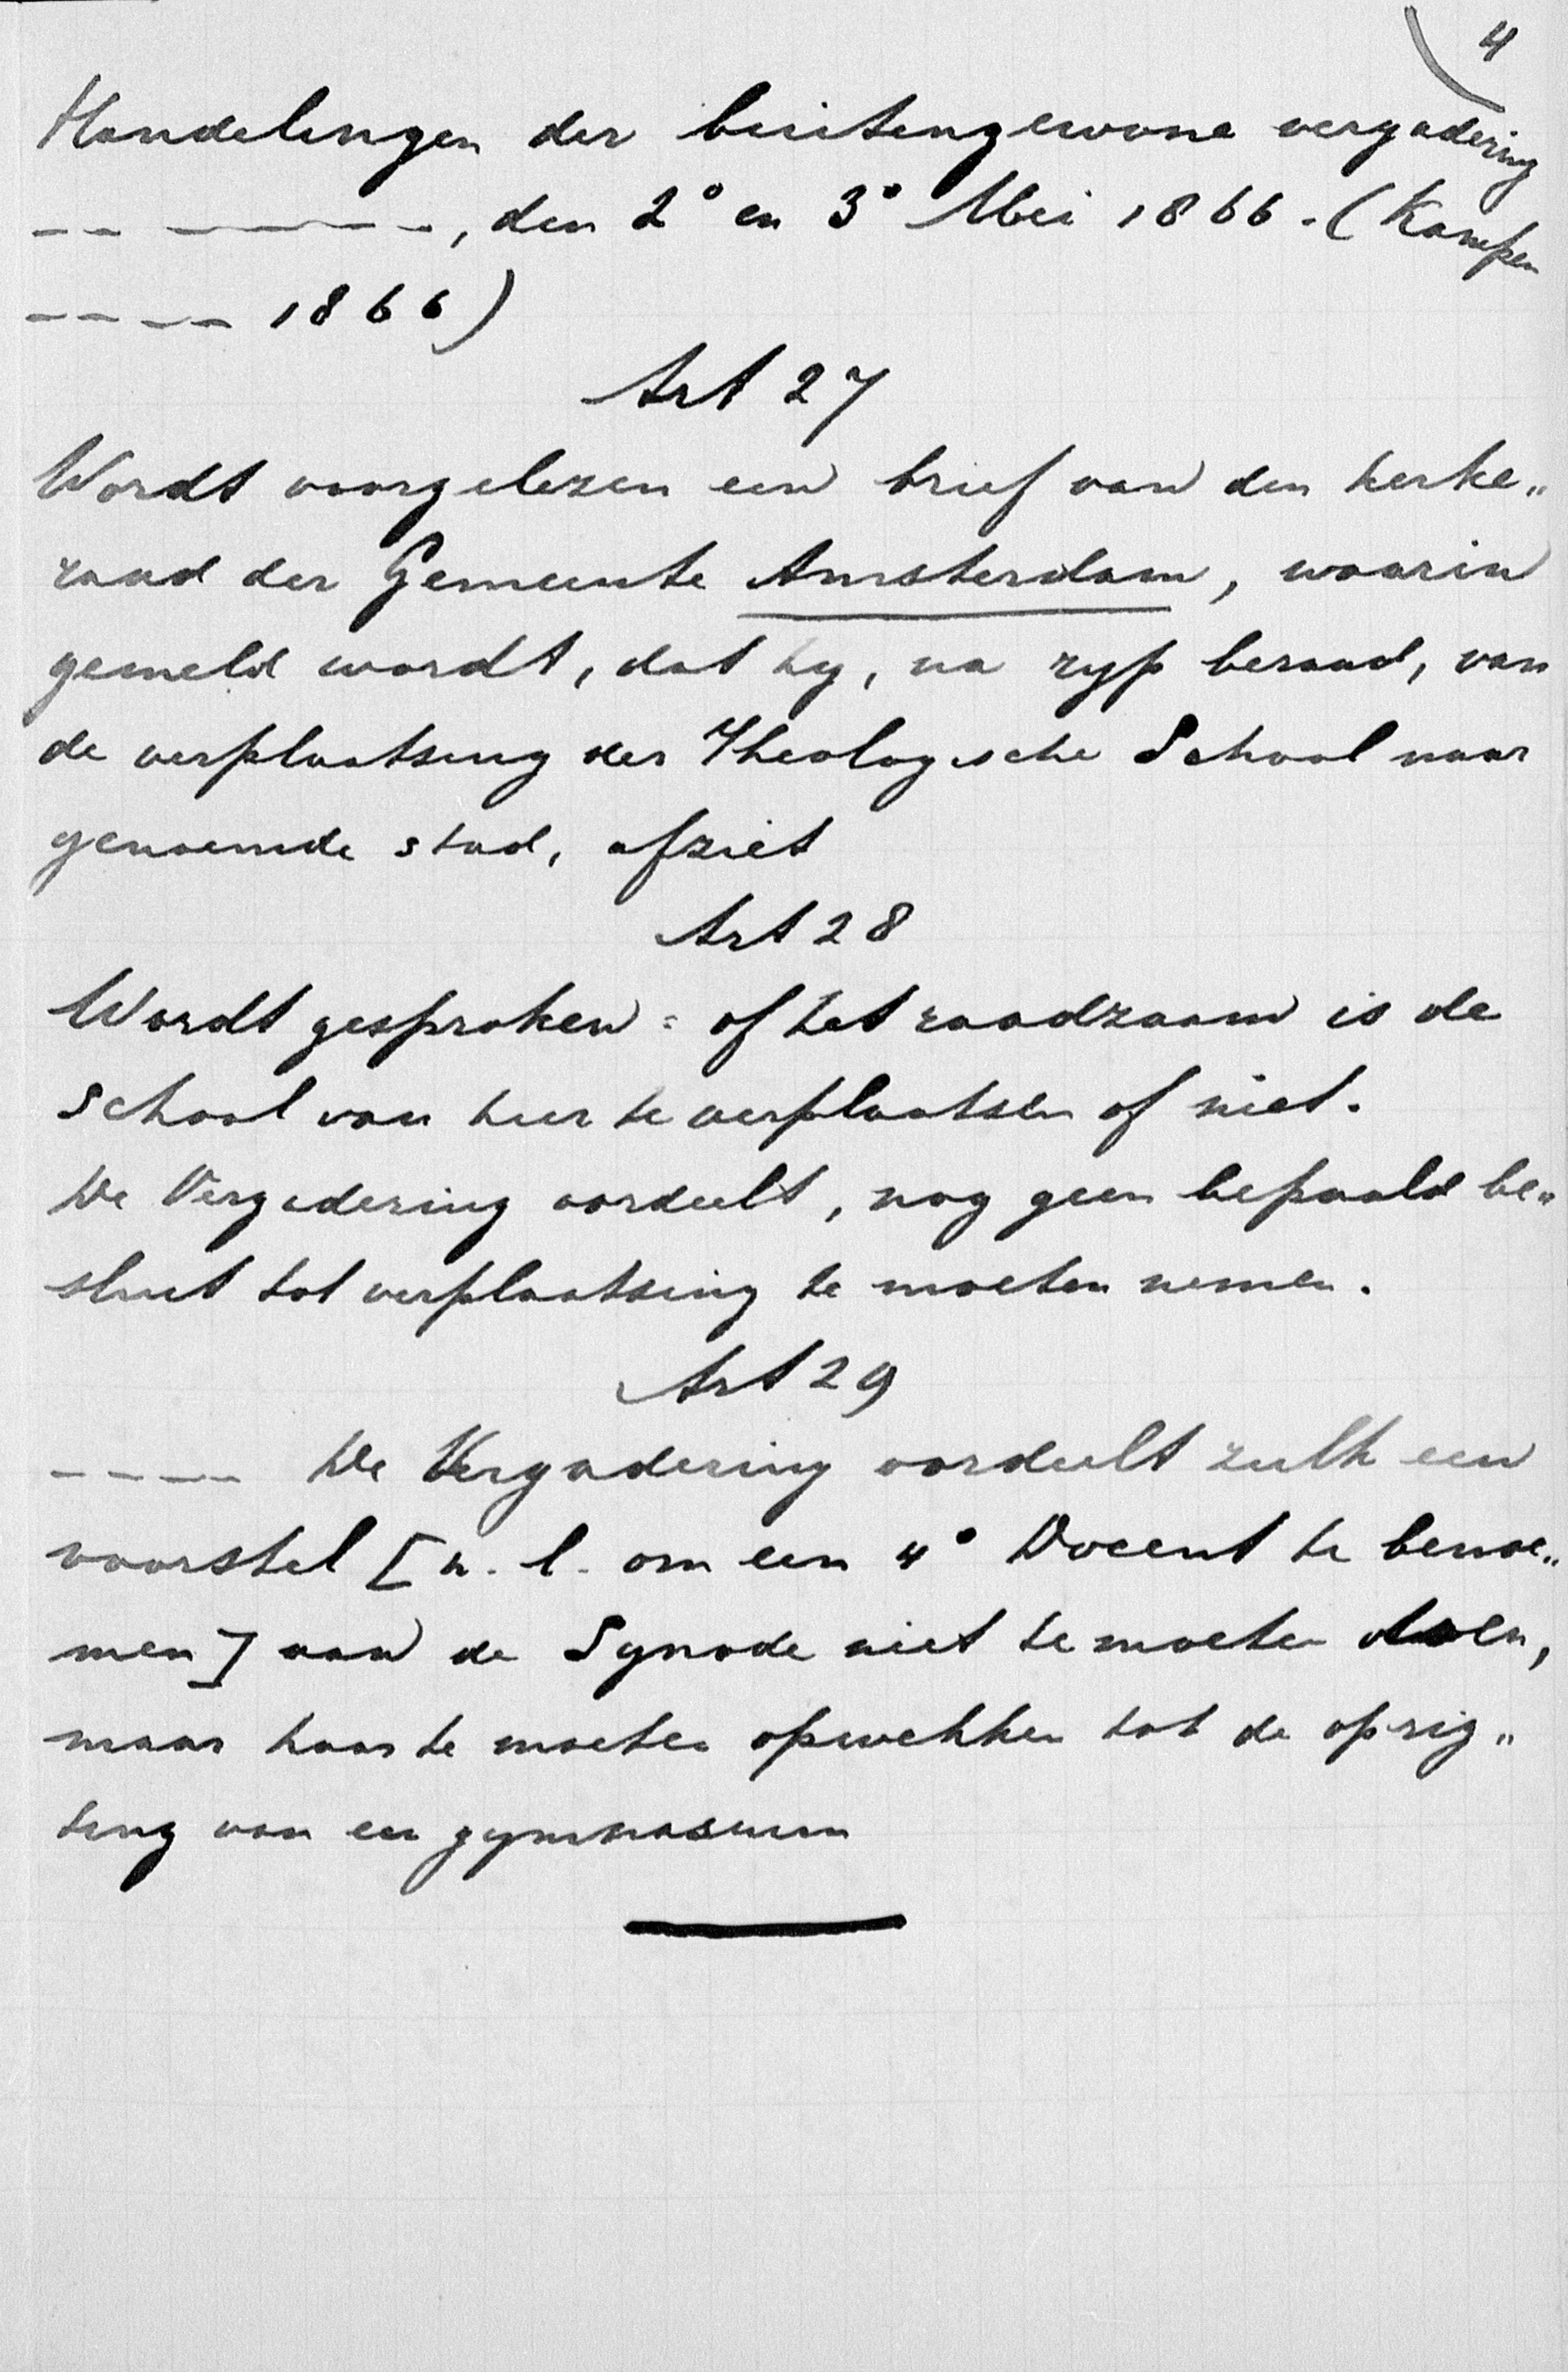 4
Handelingen der buitengewone vergadering
-- ----, den 2° en 3° Mei 1866. (Kampen
---- 1866)
Art 27
Wordt voorgelezen een brief van den kerke„
raad der Gemeente Amsterdam, waarin
gemeld wordt, dat hy, na ryp beraad, van
de verplaatsing der Theologische School naar
genoemde stad, afziet
Art 28
Wordt gesproken: of het raadzaam is de
School van hier te verplaatsen of niet.
De Vergadering oordeelt, nog geen bepaald be„
sluit tot verplaatsing te moeten nemen.
Art 29
---- De Vergadering oordeelt zulk een
voorstel [n.l. om een 4° Docent te benoe„
men] aan de Synode niet te moeten doen,
maar haar te moeten opwekken tot de oprig„
ting van een gymnasium